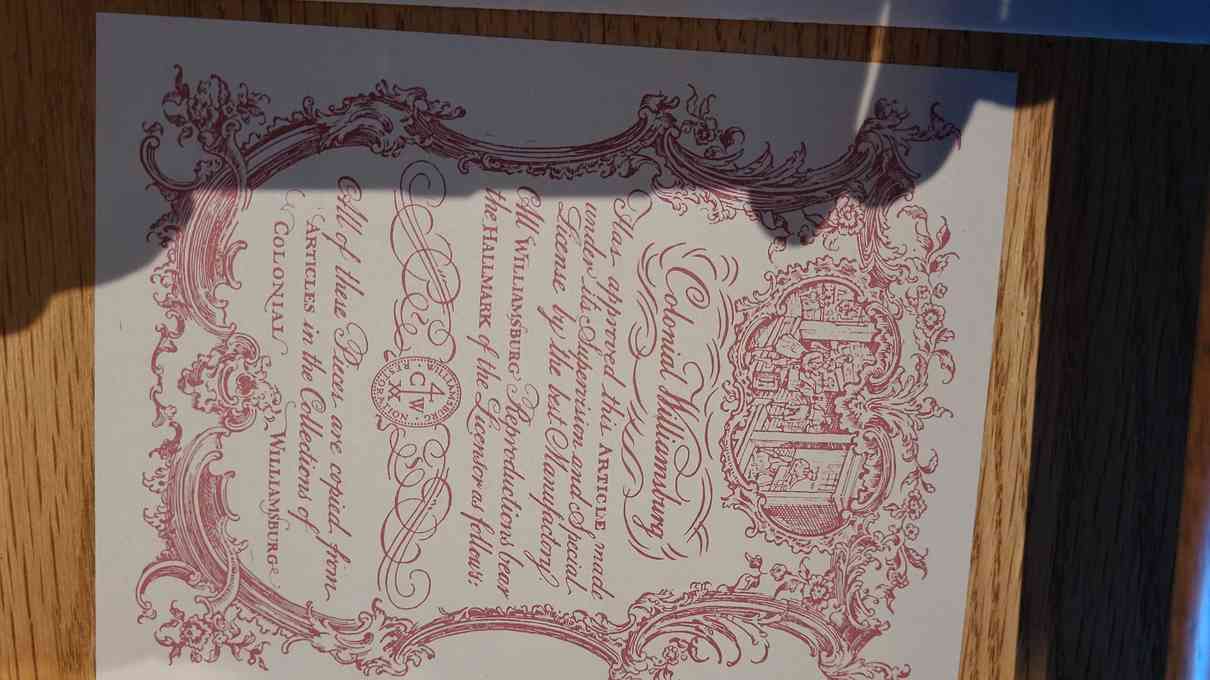 Colonial Williamsburg
Has approved this ARTICLE made
under its Supervision and Special
License by the best Manufactory.
All WILLIAMSBURG Reproductions bear
the HALLMARK of the Licensor as follows:
WILLIAMSBURG · RESTORATION ·
CW
All of these Pieces are copied from
ARTICLES in the Collections of
COLONIAL WILLIAMSBURG